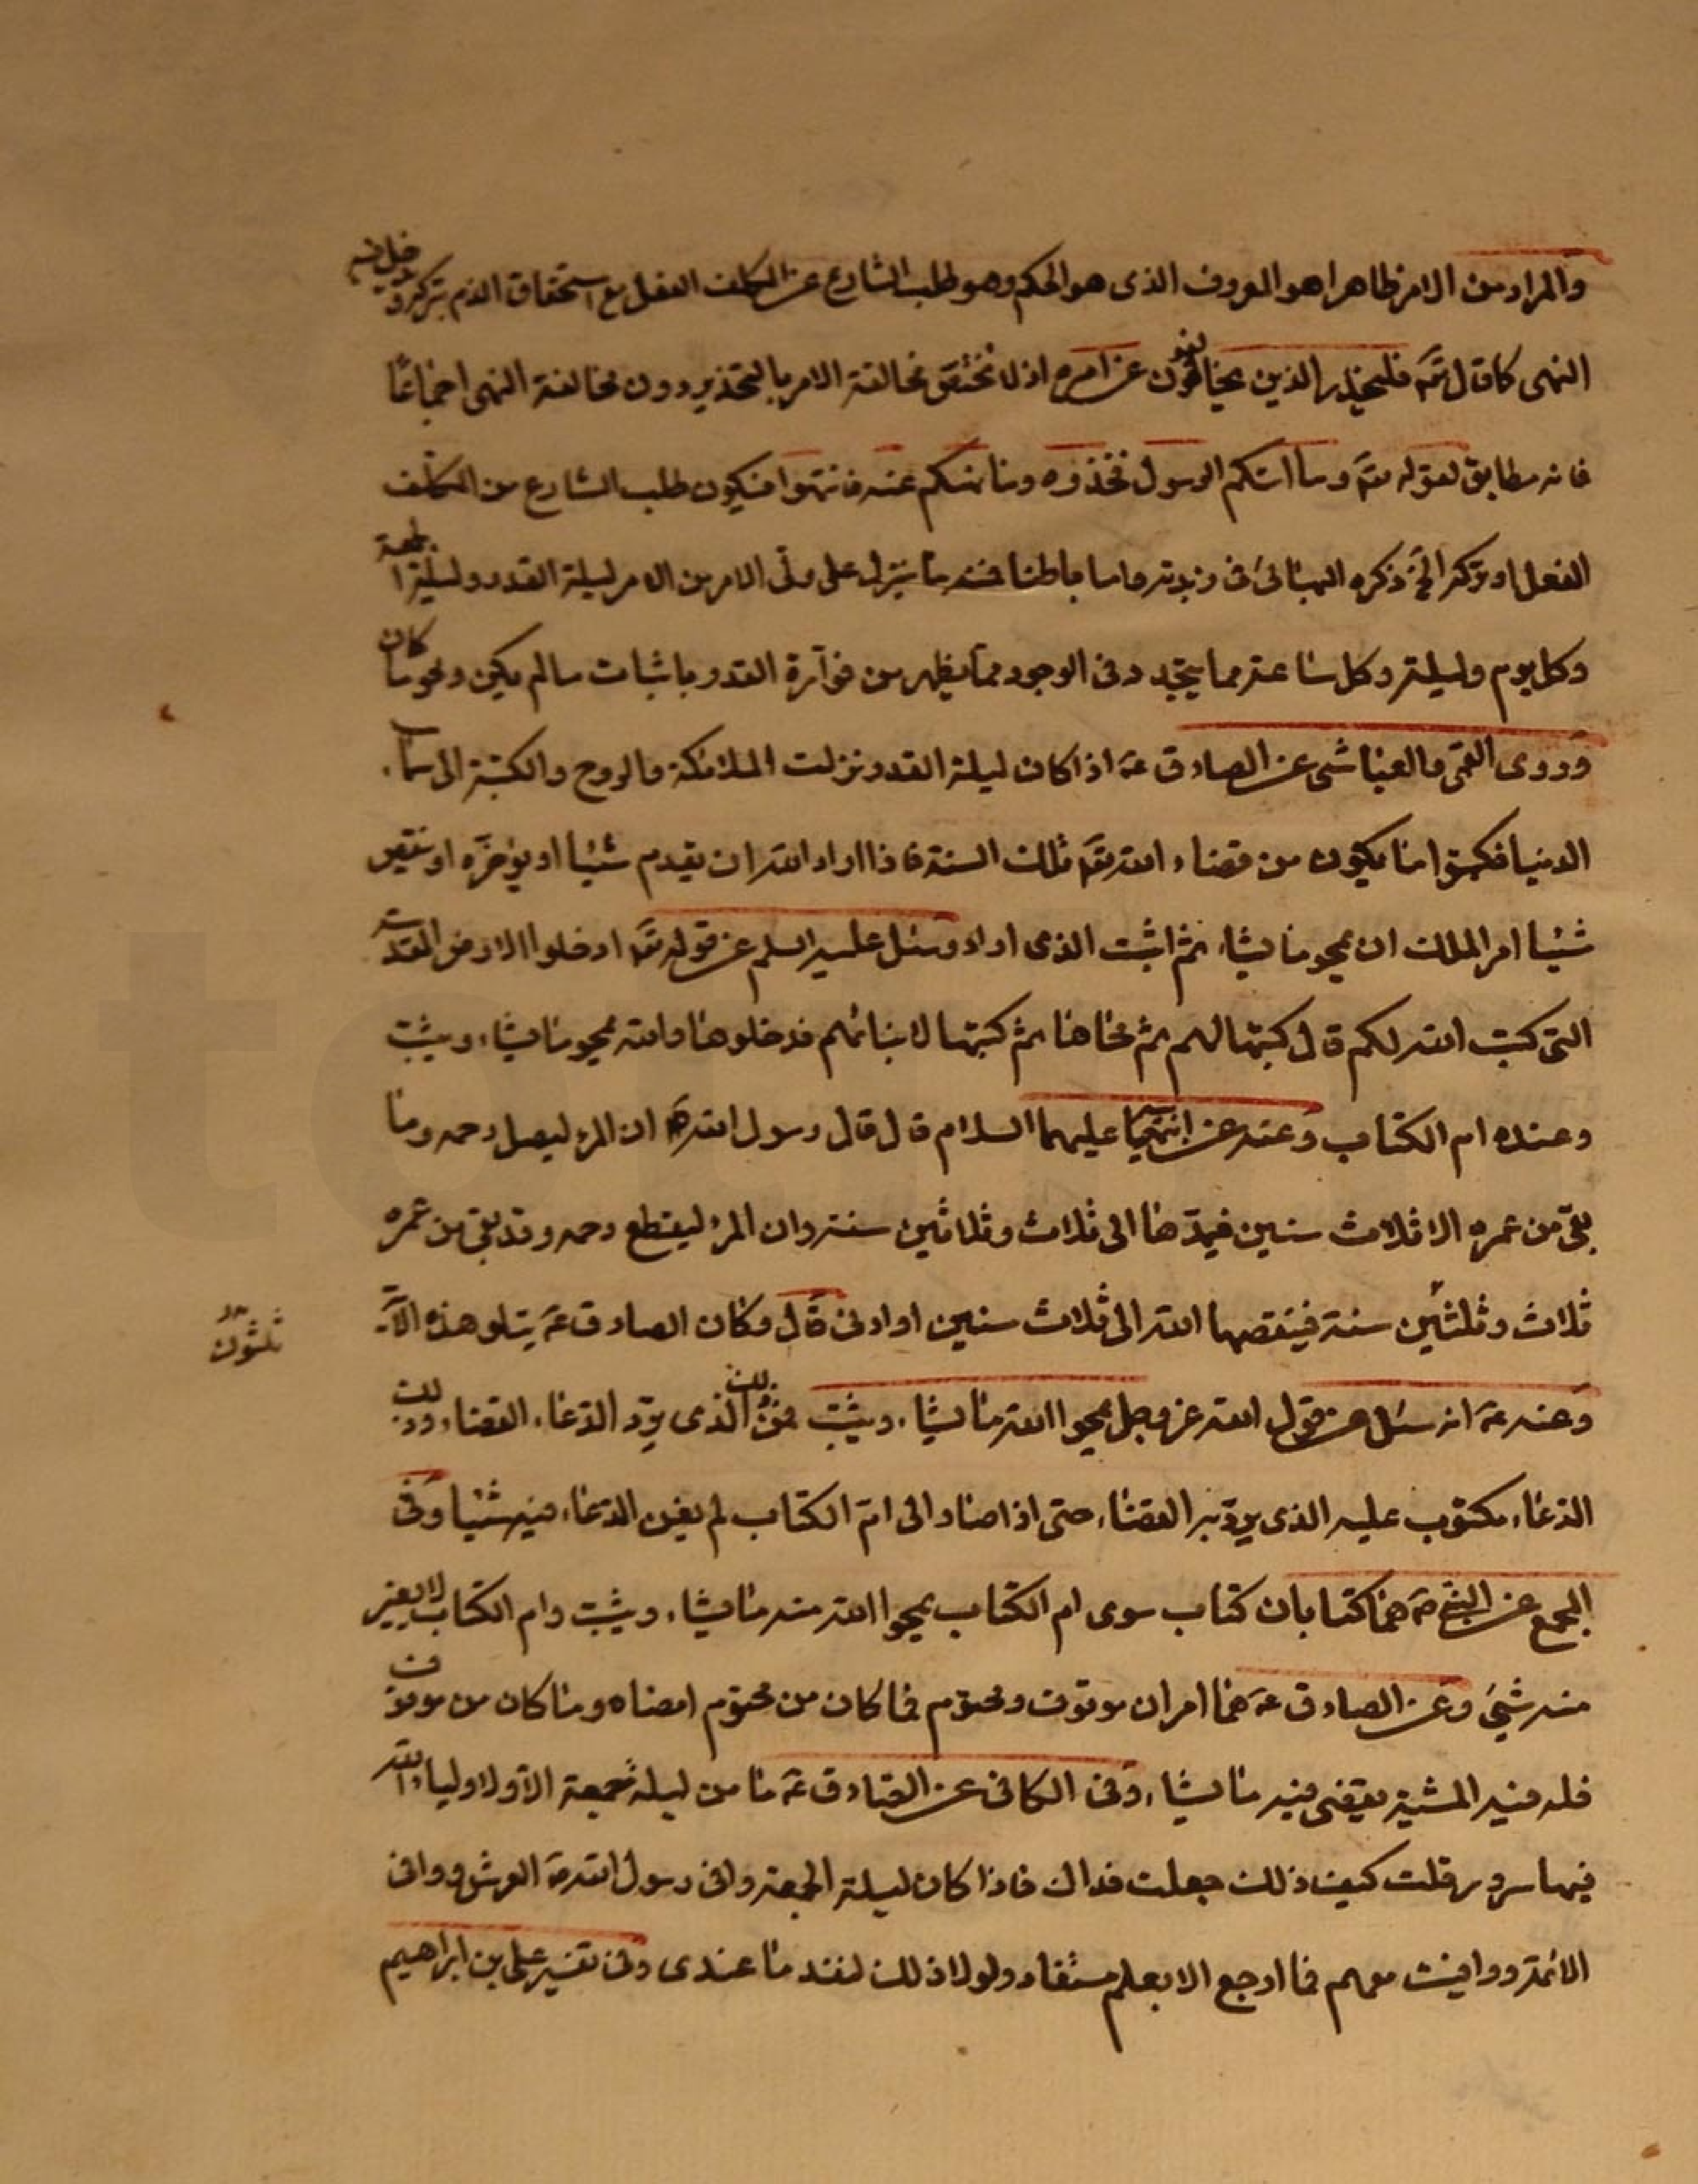 والمراد من الامر ظاهرا هو المعروف الذى هو الحكم وهو طلب الشارع عن المكلف الفعل مع استحقاق الذم بتركه ودخل فيه
النهى كما قال تعَ فليحذر الذين يخالفون عن امره اذ لا تختص مخالفة الامر بالتحذير دون مخالفة النهى اجماعًا
فانه مطابق لقوله تعَ وما اتيكم الرسول فخذوه وما نهيكم عنه فانتهوا فيكون طلب الشارع من المكلف
الفعل او تركه الخ ذكره البهائى فى زبدته واما باطنا فمنه ما ينزل على ولّى الامر من الامر ليلة القدر وليلة الجمعة
وكل يوم وليلة وكل ساعة مما يتجدد فى الوجود مما يظهر من فوآرة القدر باثبات ما لم يكن ومحو ما كان
وروى القمى والعياشى عن الصادق عَ اذا كان ليلة القدر نزلت الملائكة والروح والكتبة الى سماء
الدنيا فكتبوا ما يكون من قضاء الله تعَ تلك السنة فاذا اراد الله ان يقدم شيئا او يؤخرّه او ينقص
شيئا امر الملك ان يمحو ما يشاء ثم اثبت الذى اراد وسئل عليه السلم عن قوله تعَ ادخلوا الارض المقدسة
التى كتب الله لكم قال كتبها لهم ثم محاها ثم كتبها لابنائهم فدخلوها والله يمحو ما يشاء ويثبت
وعنده ام الكتاب وعنه عن ابيه عليهما السلام قال قال رسول الله صَ ان المرء ليصل رحمه وما
بقى من عمره الا ثلاث سنين فيمدّها الى ثلاث وثلاثين سنة وان المرء ليقطع رحمه وقد بقى من عمره
ثلاث وثلثين سنة فينقصها الله الى ثلاث سنين او ادنى قال وكان الصادق عَ يتلو هذه الآية
ثلثون
وعنه عَ انه سئل عن قول الله عز وجل يمحوا الله ما يشاء ويثبت الذى يردّ الدّعاء القضاء وذلك
الدّعاء مكتوب عليه الذى يردّ به القضاء حتى اذا صار الى امّ الكتاب لم يغن الدّعاء فيه شيئا وفى
المجمع عن النبى صَ هما كتابان كتاب سوى ام الكتاب يمحوا الله منه ما يشاء ويثبت وام الكتاب لا يغير
منه شيئ وعن الصادق عَ هما امران موقوف ومحتوم فما كان من محتوم امضاه وما كان من موقوف
فله فيه المشية يقضى فيه ما يشاء وفى الكافى عن الصادق عَ ما من ليلة جمعة الا ولاولياء الله
فيها سرور قلت كيف ذلك جعلت فداك فاذا كان ليلة الجمعة وافى رسول الله صَ العرش ووافى
الائمة ووافيت معهم فما ارجع الا بعلم مستفاد ولولا ذلك لنفد ما عندى وفى تفسير على بن ابراهيم